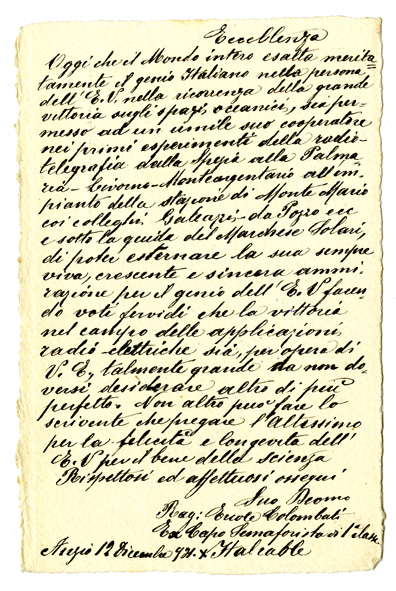 Eccellenza
Oggi che il Mondo intero esalta merita=
tamente il genio Italiano nella persona
dell' E.V. nella ricorrenza della grande
vittoria sugli spazi, oceanici, sia per=
messo ad un umile suo cooperatore
nei primi esperimenti della radio-
telegrafia dalla Spezia alla Palma
ria - Livorno - Monteargentario all'im
pianto della stazione di Monte Mario
coi colleghi. Galeazzi, - da Pozzo ecc
e sotto la guida del Marchese Solari,
di poter esternare la sua sempre
viva, crescente e sincera ammi.
razione per il genio dell' E.V facen
do voti fervidi che la vittoria
nel campo delle applicazioni
radio-elettriche sia, per opera di
V. E., talmente grande da non do=
versi desiderare altro di più
perfetto. Non altro può fare lo
scrivente che pregare l'Altissimo
per la felicità e longevità dell'
E.V per il bene della scienza
Rispettosi ed affettuosi ossequi
Suo Devmo
Rag: Ercole Colombati
Ex Capo Semaforista di 1ª classe
Anzio 12 Dicembre Italcable